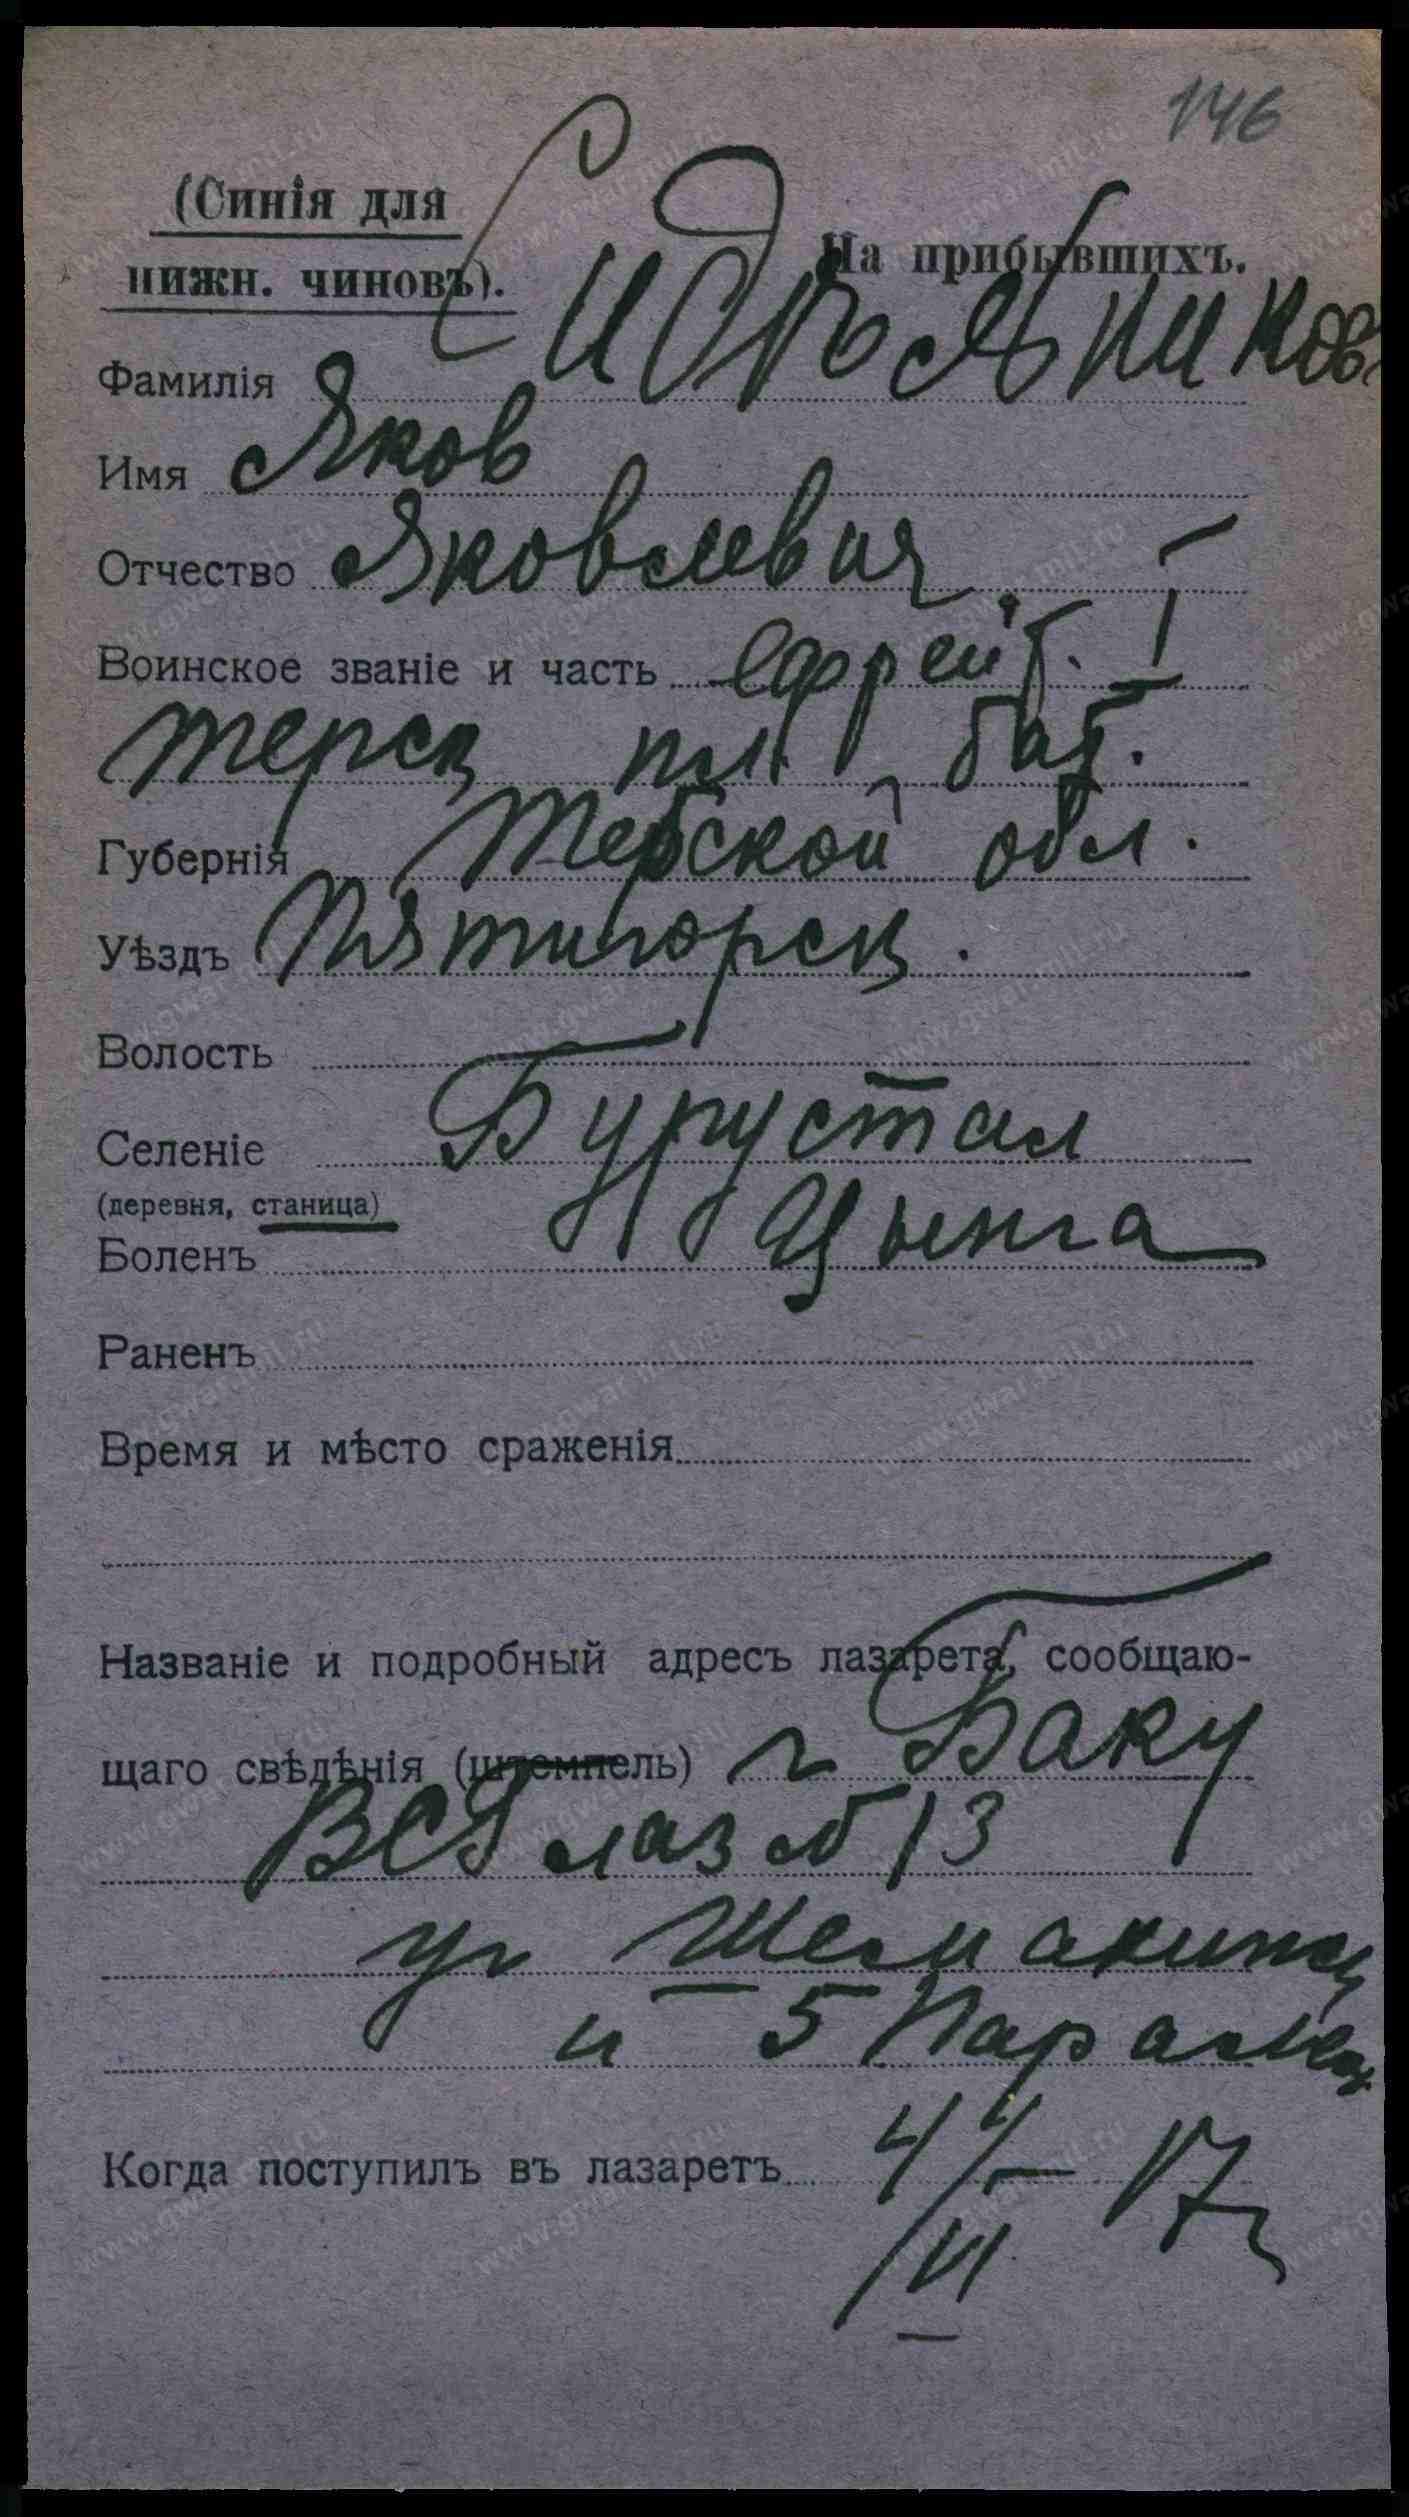 146
(Синія для
нижн. чиновъ).
На прибывшихъ.
Фамилія
Имя Яков
Отчество Яковлевич
Воинское званіе и часть Ефрейт. I
терск пл. бат.
Губернія Терской обл.
Уѣздъ Пятигорск.
Волость
Селеніе Бурустал
(деревня, станица)
Боленъ Цынга
Раненъ
Время и мѣсто сраженія
Названіе и подробный адресъ лазарета, сообщаю-
щаго свѣдѣнія (штемпель) г Баку
ВСГ лаз № 13
уг Шемахинск
и 5 Паралел
Когда поступилъ въ лазаретъ 4/VI – 17 г